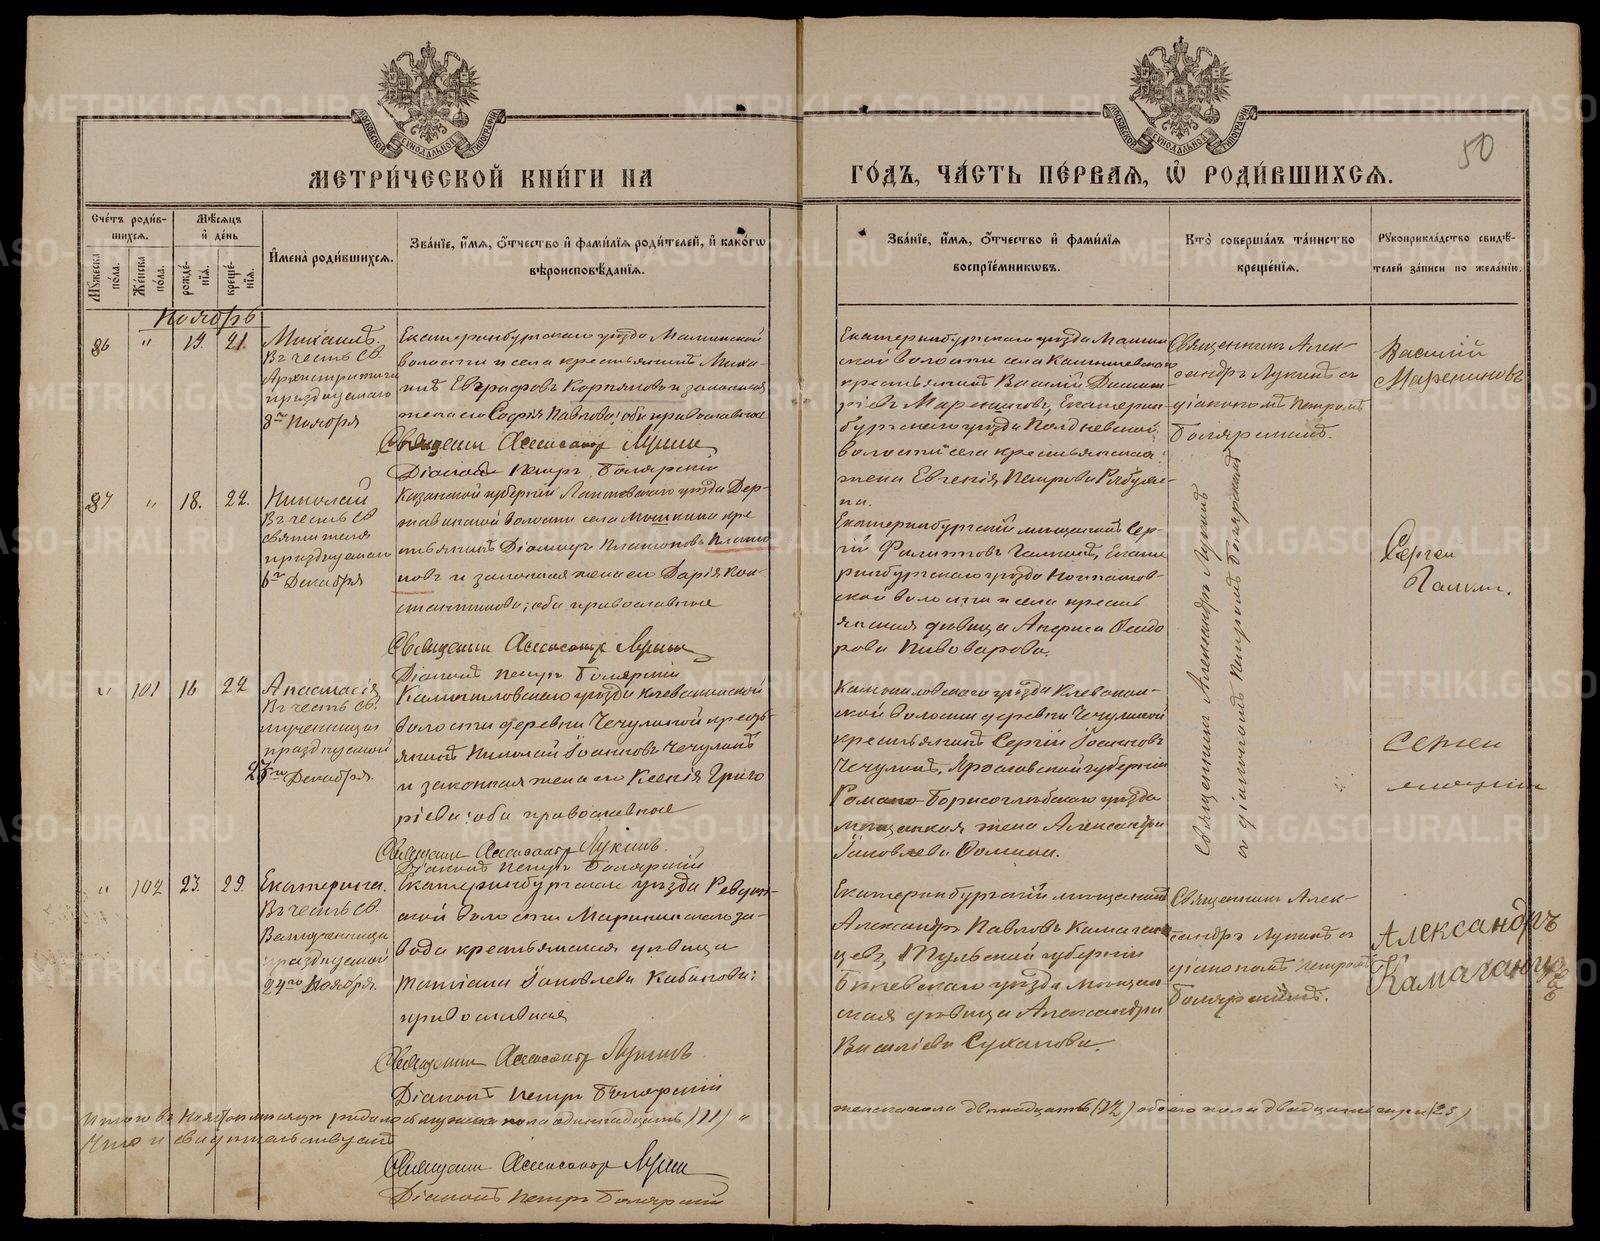 МЕТРИ́ЧЕСКОЙ КНИ́ГИ НА
ГО́ДЪ, ЧА́СТЬ ПЕ́РВАѦ, Ѡ҆ РОДИ́ВШИХСѦ.
50
Сче́тъ роди́в-
шихсѧ.
Мꙋ́жеска по́ла.
Же́нска по́ла.
Мѣ́сѧцъ
и҆ де́нь
рожде́-
нїѧ.
креще́-
нїѧ.
И҆мена̀ роди́вшихсѧ.
Зва́нїе, и҆́мѧ, ѻ҆́тчество и҆ фами́лїѧ роди́телей, и҆ како́гѡ
вѣроисповѣ́данїѧ.
Зва́нїе, и҆́мѧ, ѻ҆́тчество и҆ фами́лїѧ
воспрїе́мникѡвъ.
Кто̀ соверша́лъ та́инство
креще́нїѧ.
Рꙋкоприкла́дство свидѣ́-
телей за́писи по жела́нїю.
Ноябрь
86 " 19. 21.
Михаилъ.
Въ честь Св.
Архистратига
празднуемаго
8го Ноября
Екатеринбургскаго уѣзда
волости и села крестьянинъ Миха-
илъ Евграфовъ и законная
жена его Софія Павлова; оба православные
Священникъ Александръ Лукинъ
Діаконъ Петръ Боляремій
Екатеринбургскаго уѣзда
ской волости села
крестьянинъ Василій Димит-
ріевъ Марениновъ, Екатерин-
бургскаго уѣзда Полдневской
волости и села крестьянская
жена Евгенія Петрова
на.
Священникъ Алек-
сандръ Лукинъ съ
діакономъ Петромъ
Василій
Марениновъ
87 " 18. 22.
Николай
Въ честь Св.
Святителя
празднуемаго
6го Декабря
Казанской губерніи Лаишевскаго уѣзда Дер-
жавинской волости села кре
стьянинъ Діомидъ Платоновъ Плато
новъ и законная жена его Дарія Кон-
стантинова; оба православные
Священникъ Александръ Лукинъ
Діаконъ Петръ
Екатеринбургскій мѣщанинъ Сер-
гій Филипповъ Галкинъ, Екате
ринбургскаго уѣзда
ской волости и села кресть
янская дѣвица Ѳедо
рова Пивоварова.
Священникъ Александръ Лукинъ
съ діакономъ Петромъ
Сергей
Галкин.
" 101 16 22
Анастасія
Въ честь Св.
мученицы
празднуемой
Декабря.
Камышловскаго уѣзда
волости деревни Чечулиной кресть-
янинъ Николай Іоанновъ Чечулинъ
и законная жена его Ксенія Григо
ріева; оба православные
Священникъ Александръ Лукинъ.
Діаконъ Петръ
Камышловскаго уѣзда
ской волости деревни Чечулиной
крестьянинъ Сергій Іоанновъ
Чечулинъ, Ярославской губерніи
Романо-Борисоглѣбскаго уѣзда
мѣщанская жена Александра
Іаковлева
" 102 23. 29.
Екатерина.
Въ честь Св.
Великомученицы
празднуемой
24го Ноября.
Екатеринбургскаго уѣзда Ревдин-
ской волости Маріинскаго за-
вода крестьянская дѣвица
Татіана Іаковлева Кабанова;
православная
Священникъ Александръ Лукинъ.
Діаконъ Петръ
Екатеринбургскій мѣщанинъ
Александръ Павловъ Камаган
цевъ, Тульской губерніи
уѣзда мѣщан
ская дѣвица Александра
Василіева Суханова.
Священникъ Алек-
сандръ Лукинъ съ
діакономъ Петромъ
Александръ
Камаганцевъ
Итого въ Ноябрѣ мѣсяцѣ родилось мужска пола одиннадцать (11) и
женска пола двѣнадцать (12) обоего пола двадцать три (23)
Что и свидѣтельствуютъ
Священникъ Александръ Лукинъ
Діаконъ Петръ
METRIKI.GASO-URAL.RU